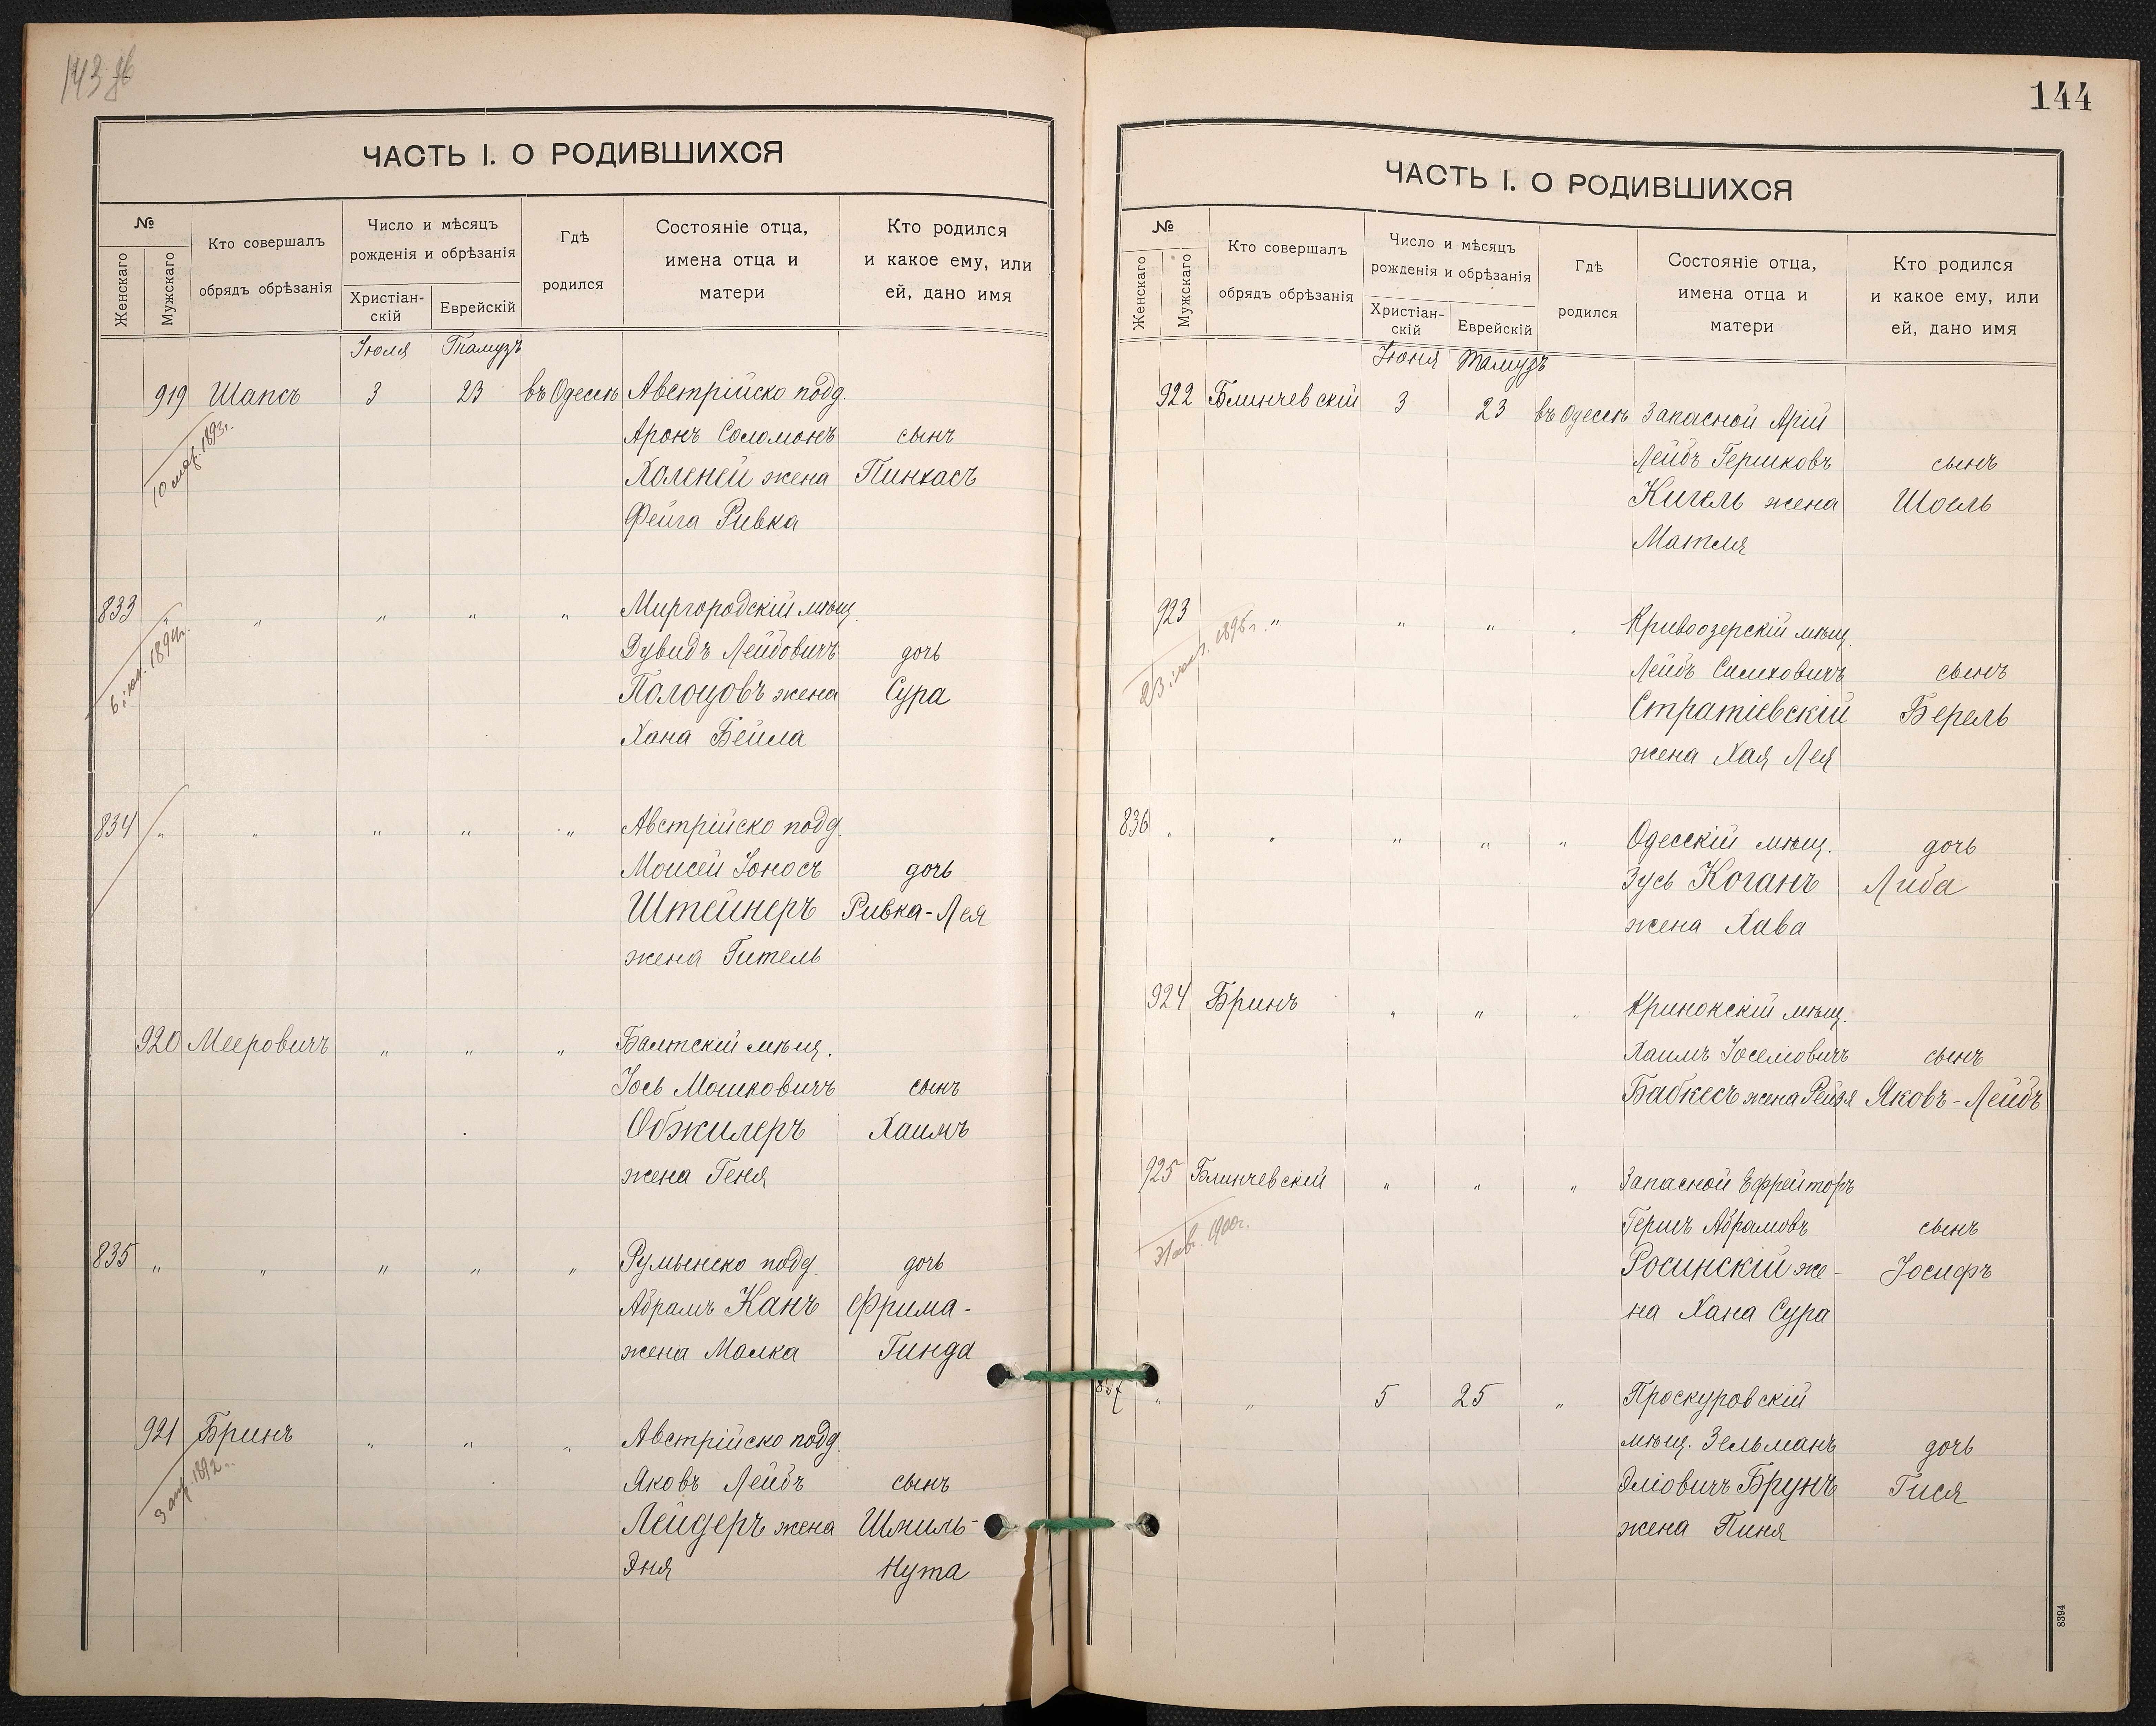 ЧАСТЬ I. О РОДИВШИХСЯ
№
Женскаго
Мужскаго
Кто совершалъ
обрядъ обрѣзанія
Число и мѣсяцъ
рожденія и обрѣзанія
Христіан-
скій
Еврейскій
Гдѣ
родился
Состояніе отца,
имена отца и
матери
Кто родился
и какое ему, или
ей, дано имя
Іюля Тамузъ
919 Шапсъ 3 23 въ Одессѣ Австрійско подд.
10 мар. 1893г.
Аронъ Соломонъ сынъ
Холеней жена Пинхасъ
Фейга Ривка
833 " " " " Миргородскій мѣщ.
1894г.
Дувидъ Лейбовичъ дочь
Полоцовъ жена Сура
Хана Бейла
834 " " " " " Австрійско подд.
Моисей Іоносъ дочь
Штейнеръ Ривка-Лея
жена Гитель
920 Мееровичъ " " " Балтскій мѣщ.
Іось Мошковичъ сынъ
Обжилеръ Хаимъ
жена Геня
835 " " " " " Румынско подд. дочь
Абрамъ Канъ Фрима-
жена Малка Гинда
921 Бринъ " " " Австрійско подд.
3 апр. 1892г.
Яковъ Лейбъ сынъ
Лейдеръ жена Шмиль-
Эня Нута
144
ЧАСТЬ I. О РОДИВШИХСЯ
№
Женскаго
Мужскаго
Кто совершалъ
обрядъ обрѣзанія
Число и мѣсяцъ
рожденія и обрѣзанія
Христіан-
скій
Еврейскій
Гдѣ
родился
Состояніе отца,
имена отца и
матери
Кто родился
и какое ему, или
ей, дано имя
Іюня Тамузъ
922 Блинчевскій 3 23 въ Одессѣ Запасной Арій
Лейбъ Гершковъ сынъ
Кигель жена Шоель
Матля
923 " " " " Кривоозерскій мѣщ.
Лейбъ Симховичъ сынъ
Стратіевскій Берель
жена Хая Лея
836 " " " " " Одесскій мѣщ. дочь
Зусь Коганъ Либа
жена Хава
924 Бринъ " " " Кринокскій мѣщ.
Хаимъ Іоселіовичъ сынъ
Бабкесъ жена Рейзя Яковъ-Лейбъ
925 Блинчевскій " " " Запасной Ефрейторъ
31 авг. 1900г.
Гершъ Абрамовъ сынъ
Росинскій же- Іосифъ
на Хана Сура
" " 5 25 " Проскуровскій
мѣщ. Зельманъ дочь
Эліовичъ Брунъ Гися
жена Пиня
8394